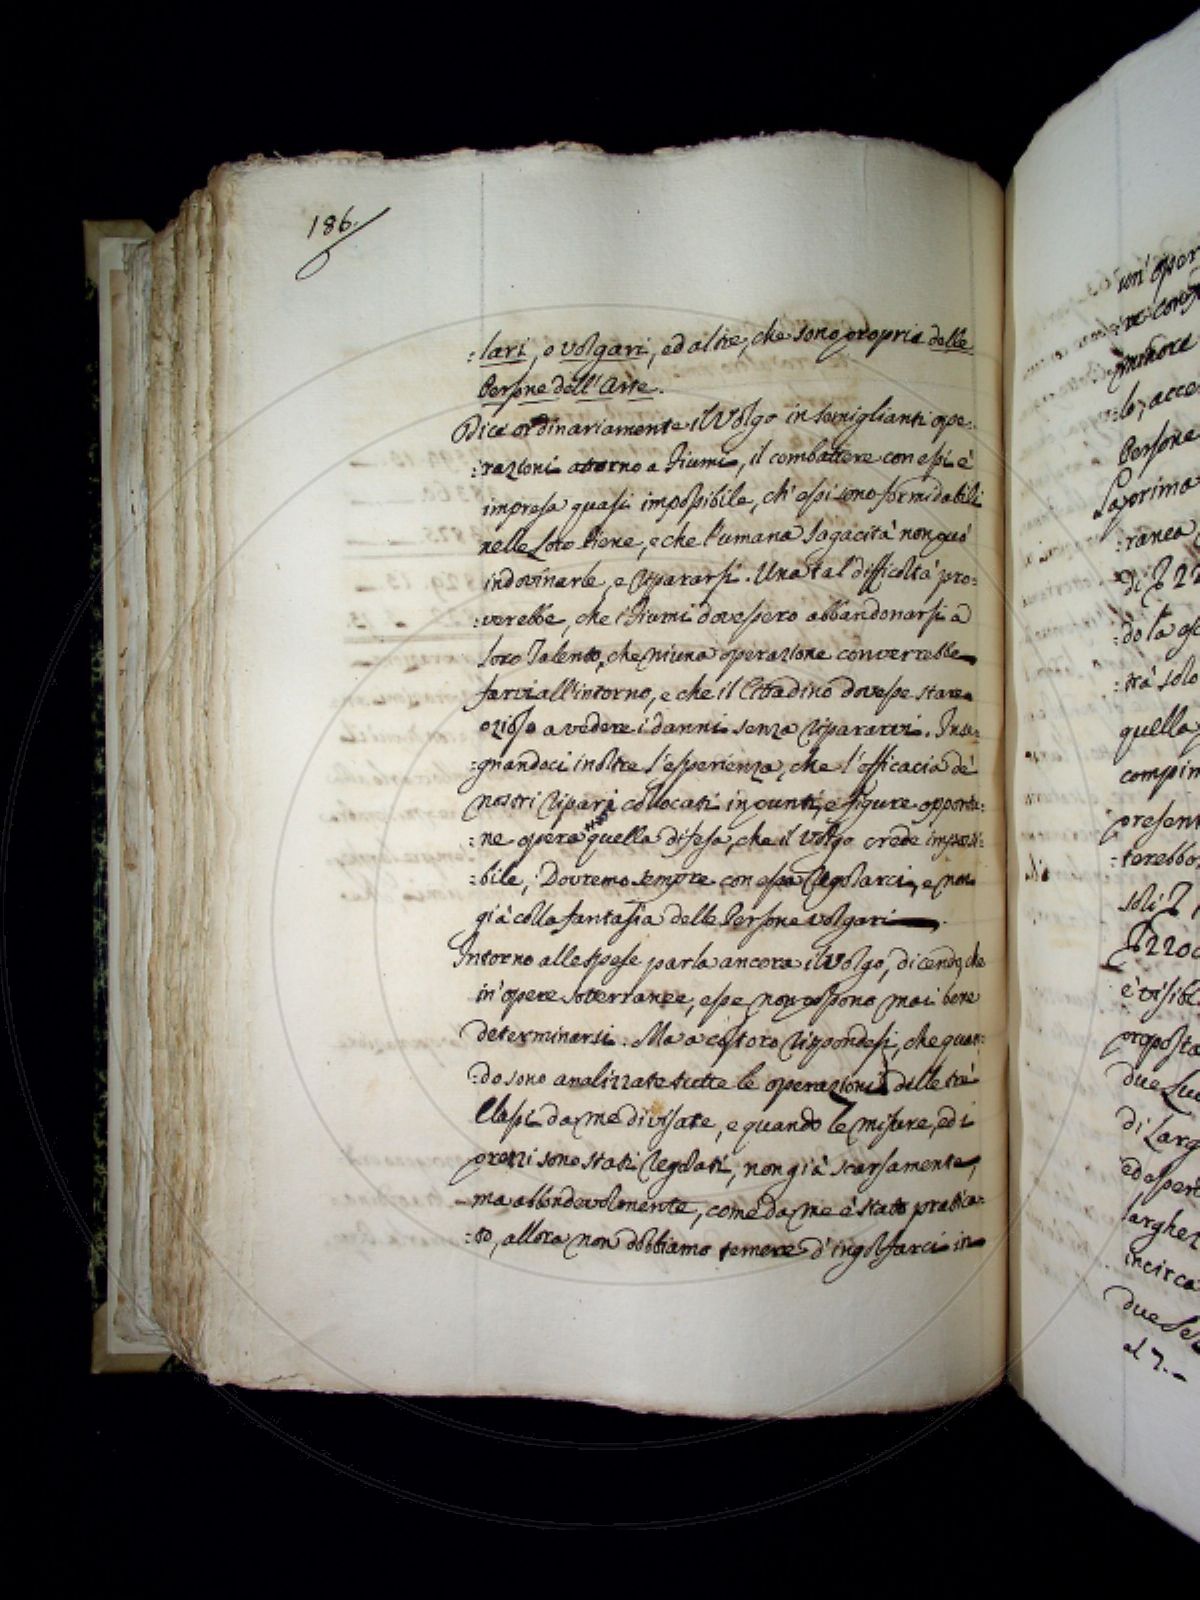 186.
:lari, o volgari, ed altre, che sono proprie delle
Persone dell'Arte.
Dice ordinariamente il Volgo in somiglianti ope:
:razioni attorno a Fiumi, il combattere con essi è
impresa quasi impossibile, ch'essi sono formidabili
nelle loro Piene, e che l'umana sagacità non può
indovinarle, e ripararsi. Una tal difficoltà pro:
:verebbe, che i Fiumi dovessero abbandonarsi a
loro Talento, che niuna operazione converrebbe
farvi all'intorno, e che il Cittadino dovesse stare
ozioso a vedere i danni senza ripararvi. Inse:
:gnandoci inoltre l'esperienza, che l'efficacia de'
nostri ripari collocati in punti, e figure opportu:
:ne opera quella difesa, che il Volgo crede impossi:
:bile, Dovremo sempre con essa regolarci, e non
già colla fantasia delle Persone volgari.
Intorno alle spese parla ancora il Volgo, dicendo, che
in opere soterranee, esse non possono mai bene
determinarsi. Ma a costoro rispondesi, che quan:
:do sono analizzate tutte le operazioni delle tré
Classi da me divisate, e quando le misure, ed i
prezzi sono stati regolati, non già scarsamente,
ma abbondevolmente, come da me è stato pratica:
:to, allora non dobbiamo temere d'ingolfarci in
un'oper
minore
:lo, acce
Persone
La prima
:ranea
di 22
:do la
:trà solo
quella
compim
present
:terebbo
soli
è visibi
proposta
due Lu
di Larg
ed asper
larghez
incirca
due Se
al 7.